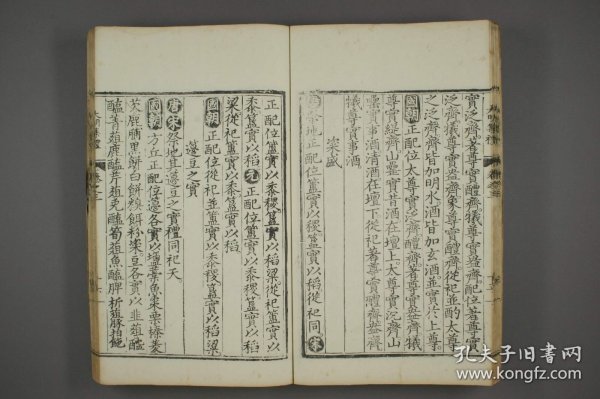 實泛齊著尊實醴齊犧尊實盎齊配位著尊實
泛齊犧尊實醴齊象尊實盎齊從祀並酌太尊
之泛齊齊皆加明水酒皆加玄酒並實於上尊
國朝正配位太尊實泛齊醴齊著尊實盎齊犧
尊實緹齊山罍實昔酒在壇上太尊實沉齊山
罍實事酒清酒在壇下從祀著尊實醴齊盎齊
犧尊實事酒
粢盛
祭地正配位簠實以稷簋實以稻從祀同宋
正配位簠實以黍稷簋實以稻粱從祀簠實以
黍稷簋實以稻元正配位簠實以黍稷簋實以稻
粱從祀簠實以黍簋實以稻
國朝正配位從祀並簠實以黍稷簋實以稻粱
籩豆之實
唐宋祭地其籩豆之實禮同祀天
國朝方丘正配位籩各實以鹽藁魚棗栗榛菱
芡鹿脯黑餅白餅糗餌粉粢豆各實以韭菹醢
醢菁菹鹿醢芹菹兔醢筍菹魚醢脾析豚拍飽
孔夫子旧书网
www.kongfz.com